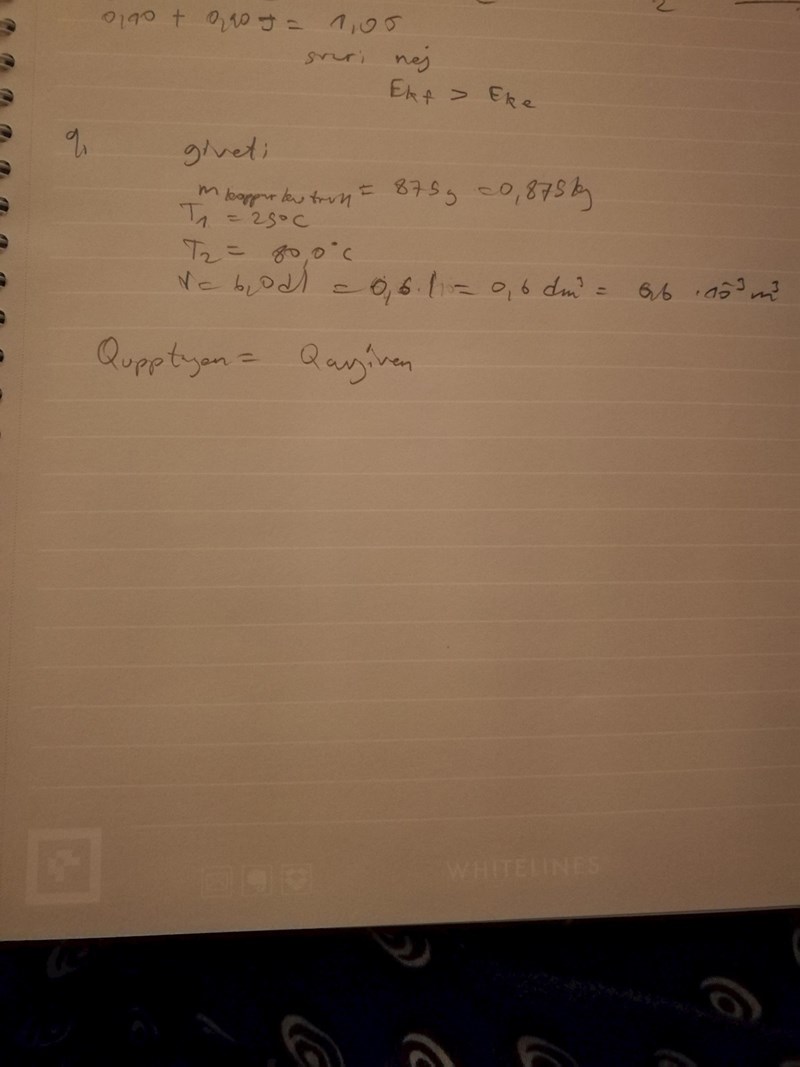 0,90 + 0,10 J = 1,0J
svar: nej
Ekf > Eke
9,
givet:
m kopparkastrull = 875g = 0,875kg
T1 = 25°C
T2 = 80,0°C
V= 6,0dl = 0,6.l = 0,6 dm³ = 0,6 · 10⁻³ m³
Qupptagen = Qavgiven
WHITELINES